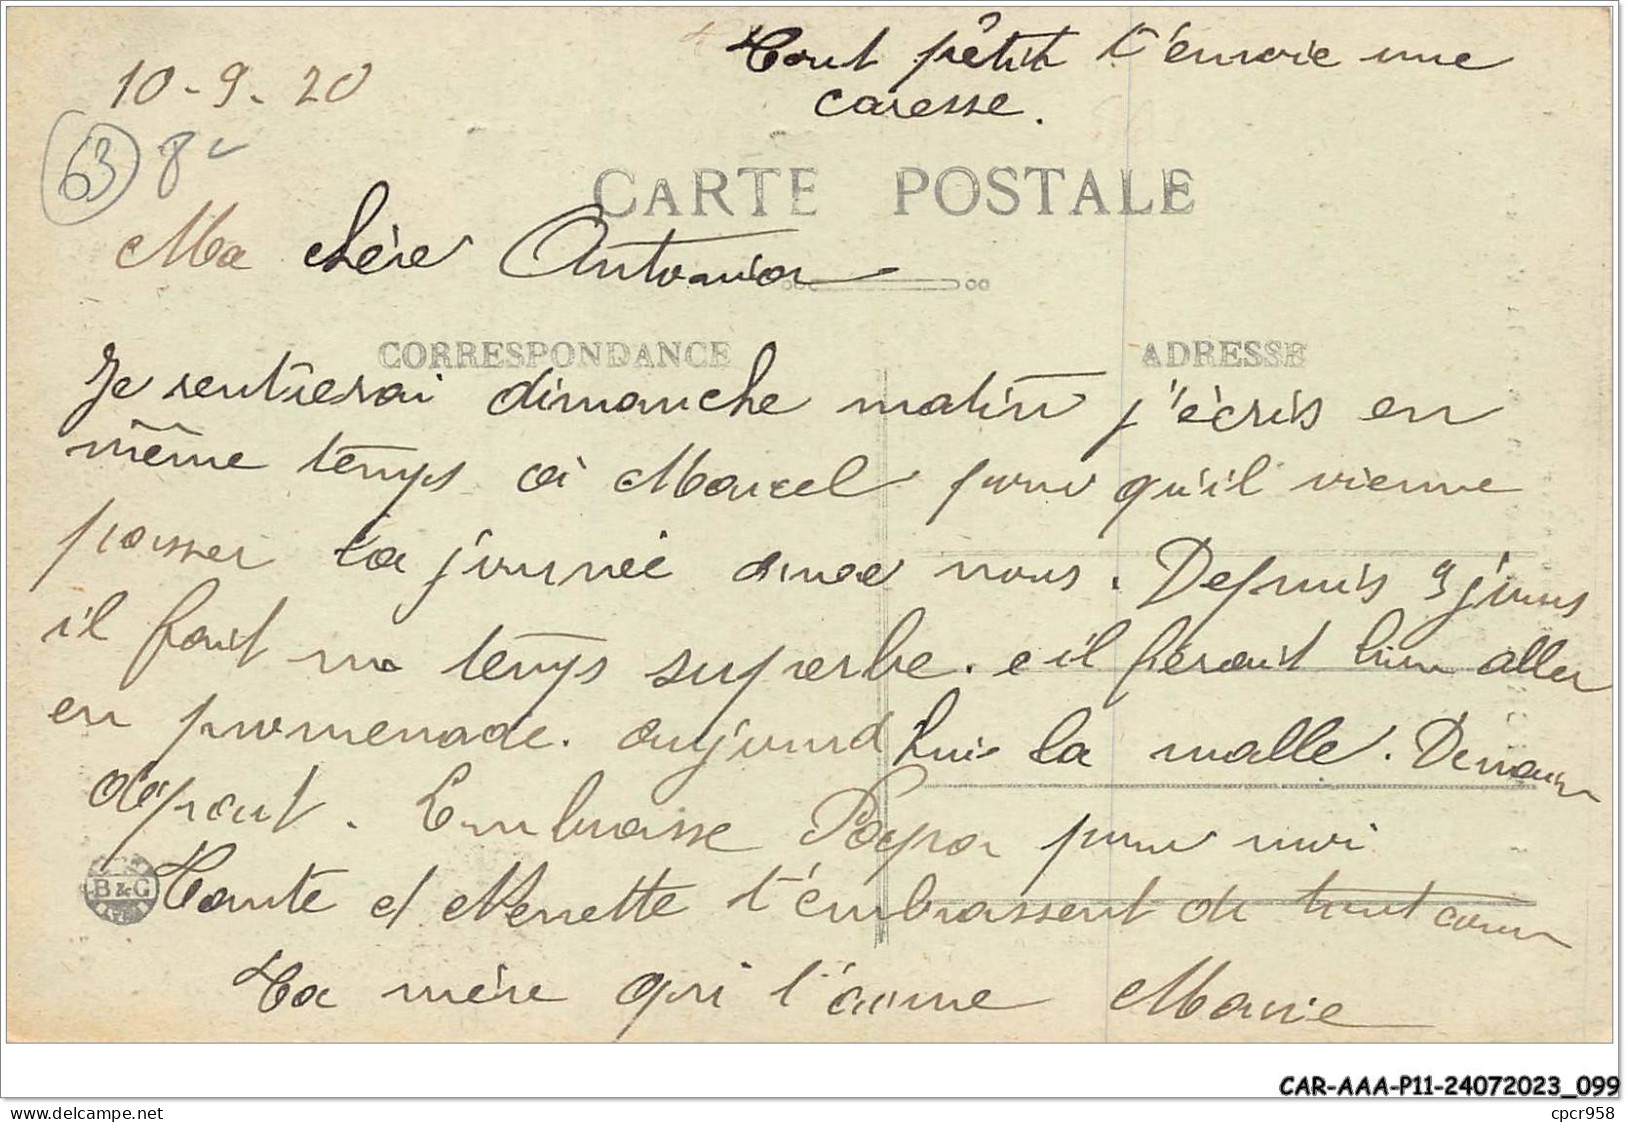 Tout pétit t'envoie une
caresse.
10-9-20
63 8
CARTE POSTALE
Ma chère Antonia
CORRESPONDANCE ADRESSE
Je rentrerai dimanche matin j'écris en
même temps à Marcel pour qu'il vienne
passer la journée avec nous. Depuis 3 jours
il fait un temps superbe. il ferait bien aller
en promenade. aujourd'huis la malle. Demain
départ. Embrasse Papa pour moi
B & G
Tante et Nenette t'embrassent de tout coeur
Ta mère qui t'aime Marie
CAR-AAA-P11-24072023_099
www.delcampe.net
cpcr958